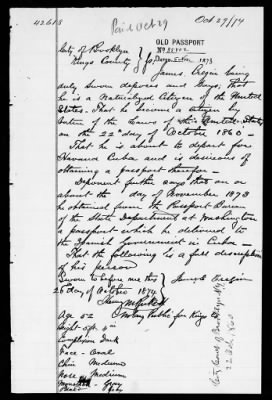 42618
Paid Oct 29
Oct 27/74
OLD PASSPORT
No.
City of Brooklyn
Kings County } ss
1873
James being
duly sworn deposes and says, that
he is a Naturalized Citizen of the United
States. That he became a citizen by
virtue of the Laws of the United States
on the 22d day of October 1860
That he is about to depart for
Havana Cuba and is desirous of
obtaining a passport therefor
Deponent further says that on or
about the day of November 1873
he obtained from the Passport Bureau
of the State Department at Washington
a passport which he delivered to
the Spanish Government in Cuba
That the following is a full description
of his person
Sworn to before me this
26 day of October 1874
James
Notary Public for Kings
Age 52
Hight 5ft
Complexion Dark
Face - Oval
Chin Medium
Nose Medium
Gray
City Court of Brooklyn NY
22 Oct 1860